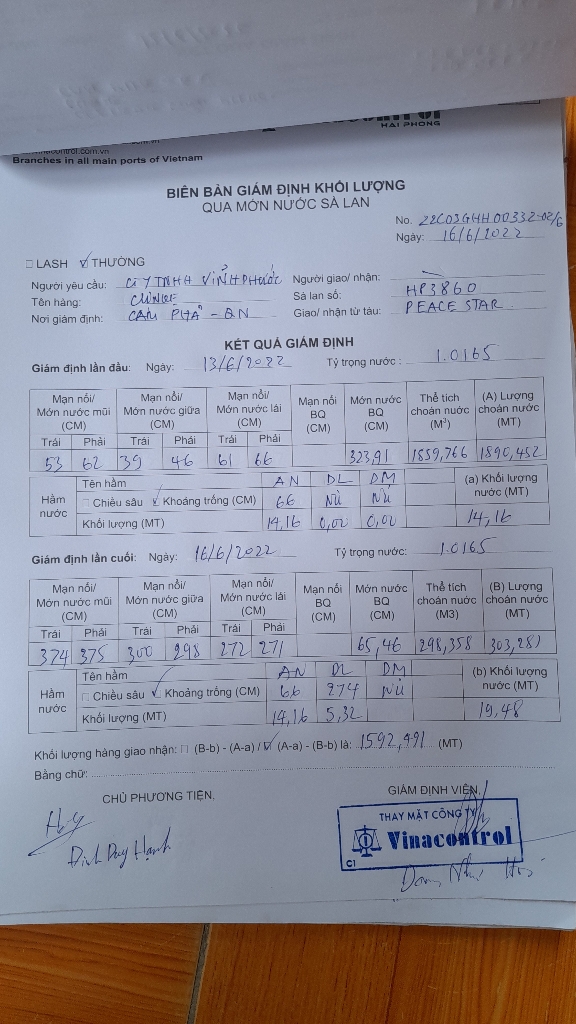 Vinacontrol
HAI PHONG
Branches in all main ports of Vietnam
BIÊN BẢN GIÁM ĐỊNH KHỐI LƯỢNG
QUA MỚN NƯỚC SÀ LAN
No. 22C03GHH00332-02/6
Ngày: 16/6/2022
LASH ✓ THƯỜNG
Người yêu cầu: CTY TNHH VĨNH PHƯỚC Người giao/ nhận:
Tên hàng: CLINKE Sà lan số: HP3860
Nơi giám định: CẨM PHẢ - QN Giao/ nhận từ tàu: PEACE STAR
KẾT QUẢ GIÁM ĐỊNH
Giám định lần đầu: Ngày: 13/6/2022 Tỷ trọng nước: 1.0165
Mạn nổi/ Mớn nước mũi (CM) Mạn nổi/ Mớn nước giữa (CM) Mạn nổi/ Mớn nước lái (CM) Mạn nổi BQ (CM) Mớn nước BQ (CM) Thể tích choán nước (M³) (A) Lượng choán nước (MT)
Trái Phải Trái Phải Trái Phải
53 62 39 46 61 66 323,91 1859,766 1890,452
Hầm nước Tên hầm AN DL DM (a) Khối lượng nước (MT)
Chiều sâu ✓ Khoảng trống (CM) 66 Nủ Nủ
Khối lượng (MT) 14,16 0,00 0,00 14,16
Giám định lần cuối: Ngày: 16/6/2022 Tỷ trọng nước: 1.0165
Mạn nổi/ Mớn nước mũi (CM) Mạn nổi/ Mớn nước giữa (CM) Mạn nổi/ Mớn nước lái (CM) Mạn nổi BQ (CM) Mớn nước BQ (CM) Thể tích choán nước (M3) (B) Lượng choán nước (MT)
Trái Phải Trái Phải Trái Phải
374 375 300 298 272 271 65,46 298,358 303,281
Hầm nước Tên hầm AN DL DM (b) Khối lượng nước (MT)
Chiều sâu ✓ Khoảng trống (CM) 66 274 Nủ
Khối lượng (MT) 14,16 5,32 19,48
Khối lượng hàng giao nhận: (B-b) - (A-a) / ✓ (A-a) - (B-b) là: 1592,491 (MT)
Bằng chữ:
CHỦ PHƯƠNG TIỆN. GIÁM ĐỊNH VIÊN,
THAY MẶT CÔNG TY
Vinacontrol
C1
Đinh Duy Hạnh